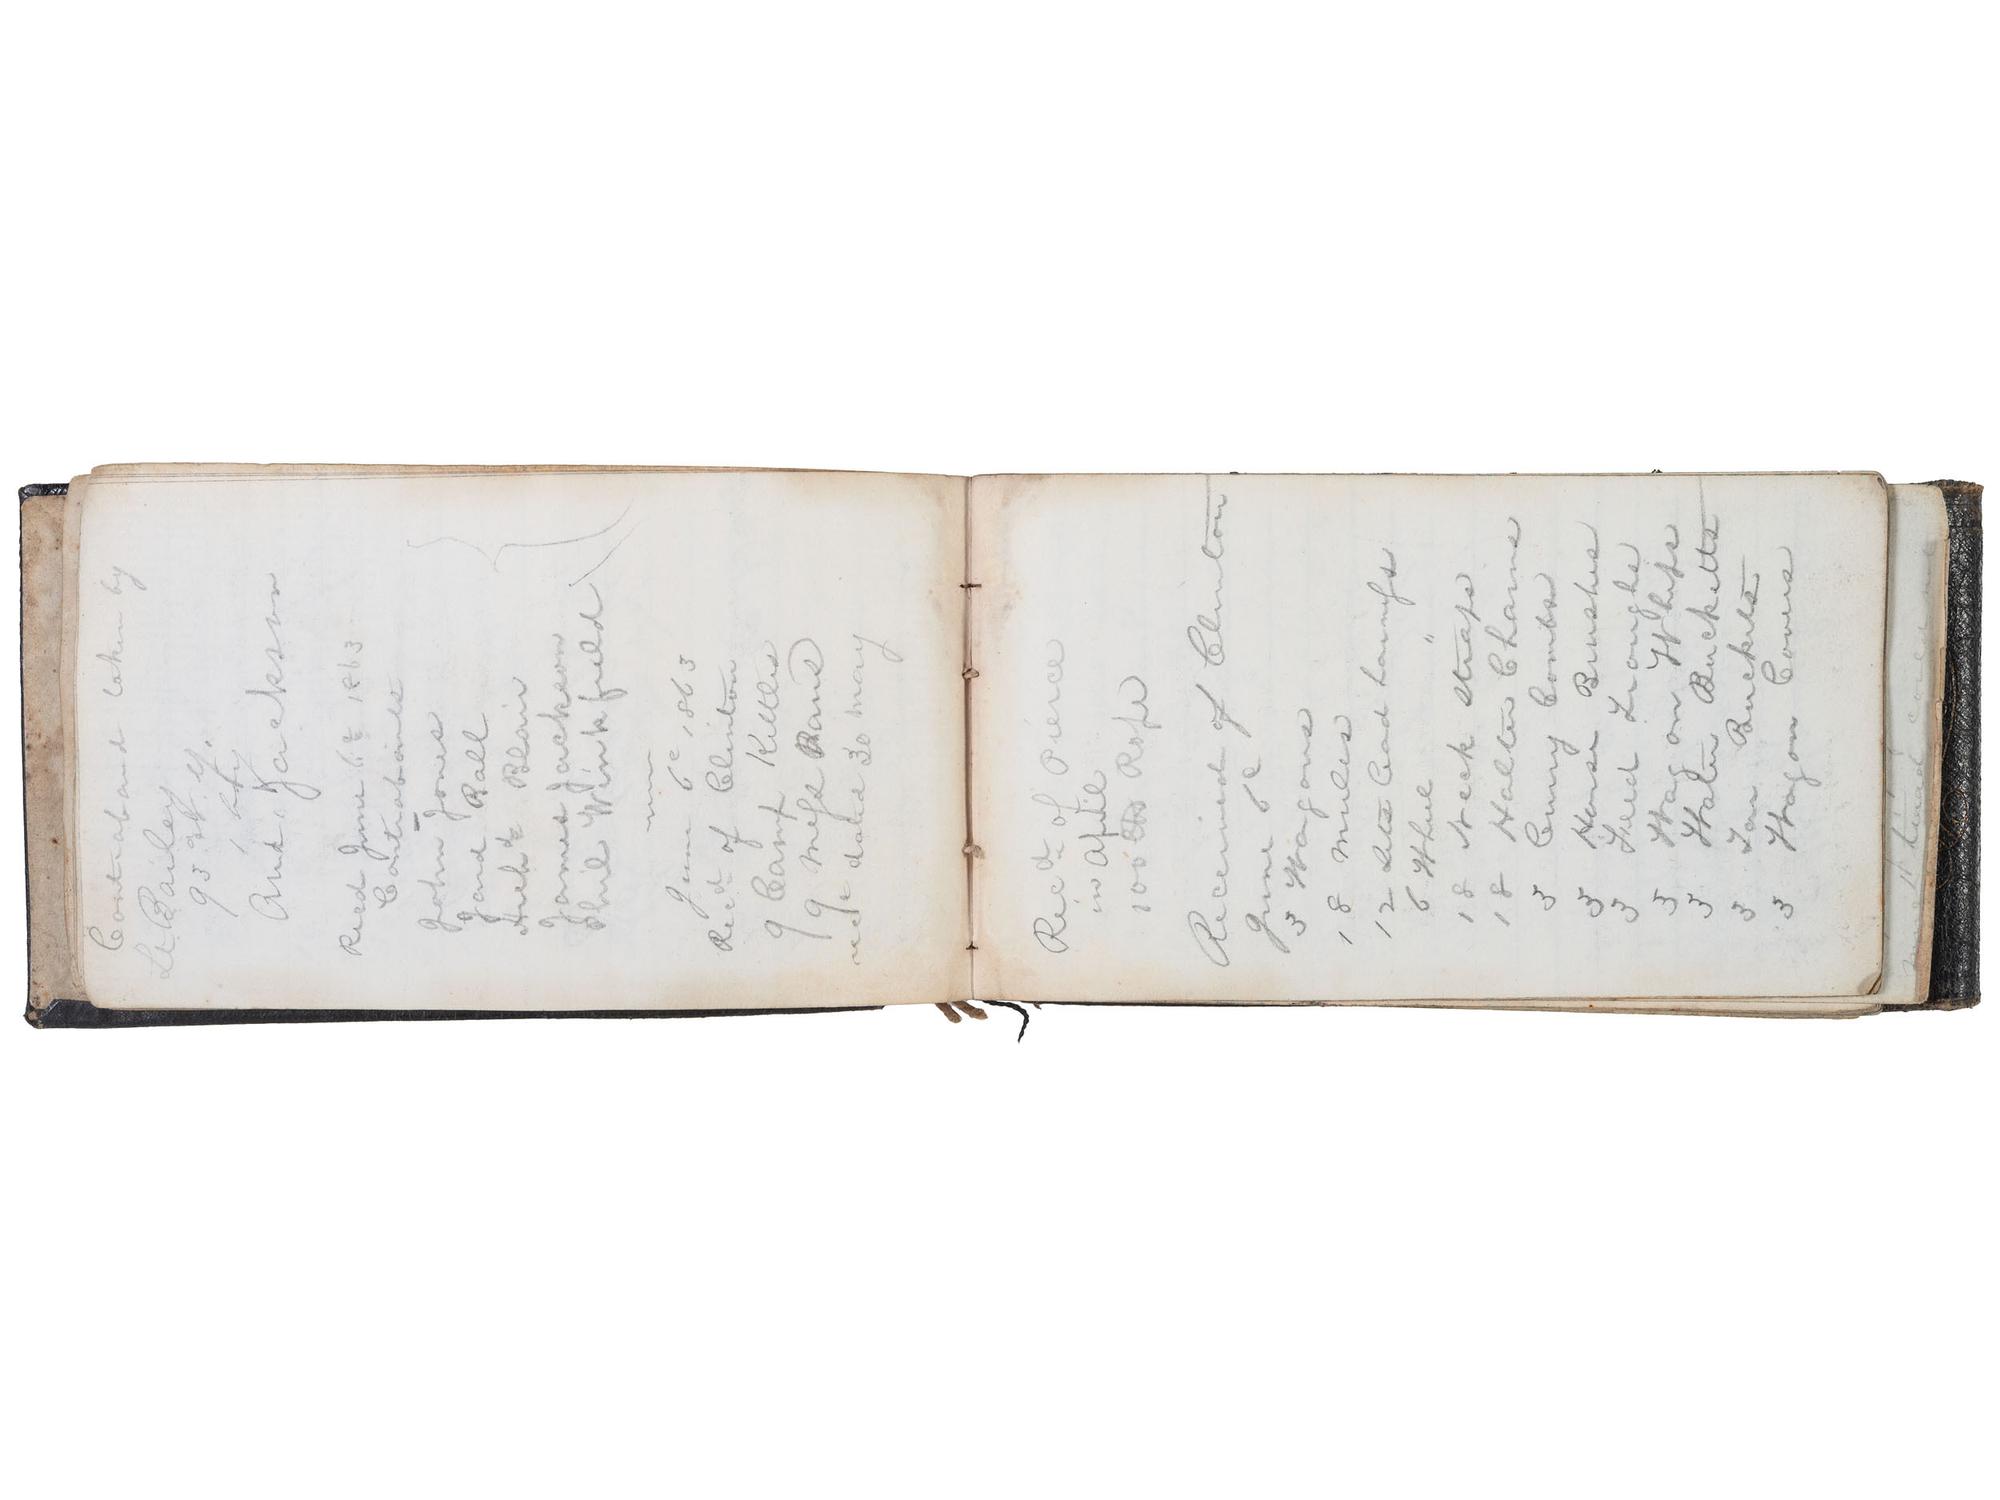 Contraband taken by
Lt. Bailey
93 N. Y.
Inf'ty
And. Jackson
Recd June 6th 1863
Contrabands
John Jones
Jand Ball
Blair
James Jackson
Phil Winkfield
June 6th, 1863
Recd of Clinton
9 Camp Kettles
9 Mess Pans
date 30 May
Recd of Pierce
in April
100 lbs Rope
Received of Clinton
June 6th
3 Wagons
18 Mules
12 Sets Lead harness
6 Wheel "
18 Neck Straps
18 Halter Chains
3 Curry Combs
3 Horse Brushes
3 Feed Troughs
3 Wagon Whips
3 Water Bucketts
3 Tar Buckets
3 Wagon Covers